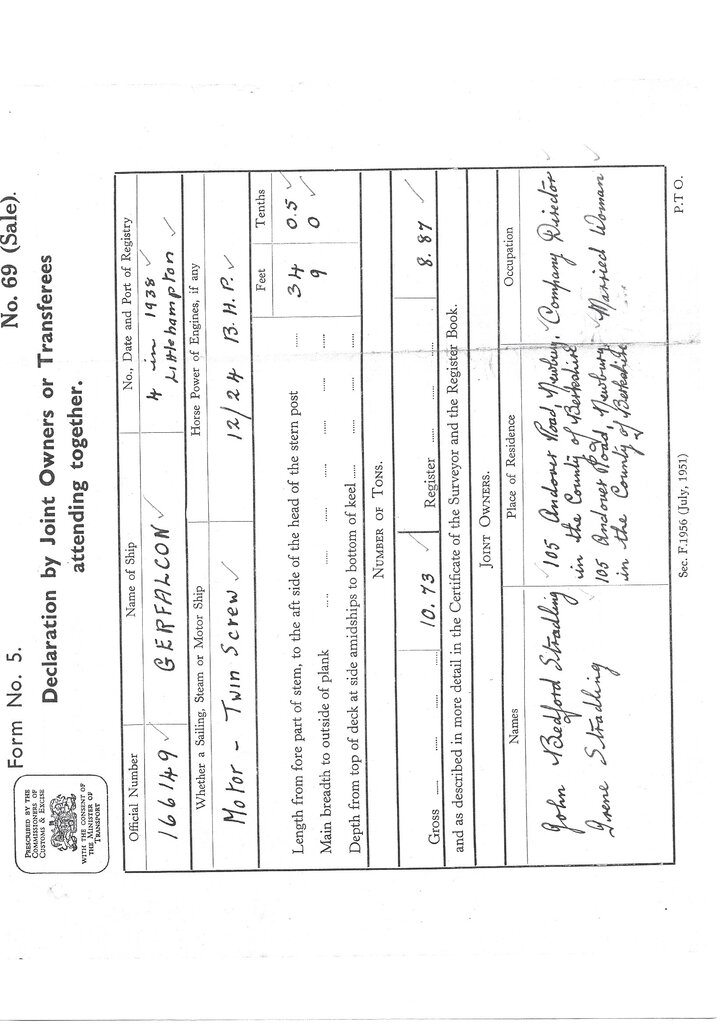 Form No. 5.
No. 69 (Sale).
PRESCRIBED BY THE
COMMISSIONERS OF
CUSTOMS & EXCISE
WITH THE CONSENT OF
THE MINISTER OF
TRANSPORT
Declaration by Joint Owners or Transferees
attending together.
Official Number
Name of Ship
No., Date and Port of Registry
166149
GERFALCON
4 in 1938
Littlehampton
Whether a Sailing, Steam or Motor Ship
Horse Power of Engines, if any
Motor - Twin Screw
12/24 B.H.P.
Feet Tenths
Length from fore part of stem, to the aft side of the head of the stern post ...... 34 0.5
Main breadth to outside of plank .... ...... ...... ...... ...... 9 0
Depth from top of deck at side amidships to bottom of keel ...... ...... ......
NUMBER OF TONS.
Gross ...... ...... ...... 10.73 Register ...... ...... ...... 8.87
and as described in more detail in the Certificate of the Surveyor and the Register Book.
JOINT OWNERS.
Names Place of Residence Occupation
John Bedford Stradling 105 Andover Road, Newbury, Company Director
in the County of Berkshire
Irene Stradling 105 Andover Road, Newbury Married Woman
in the County of Berkshire
Sec. F.1956 (July, 1951)
P.T O.